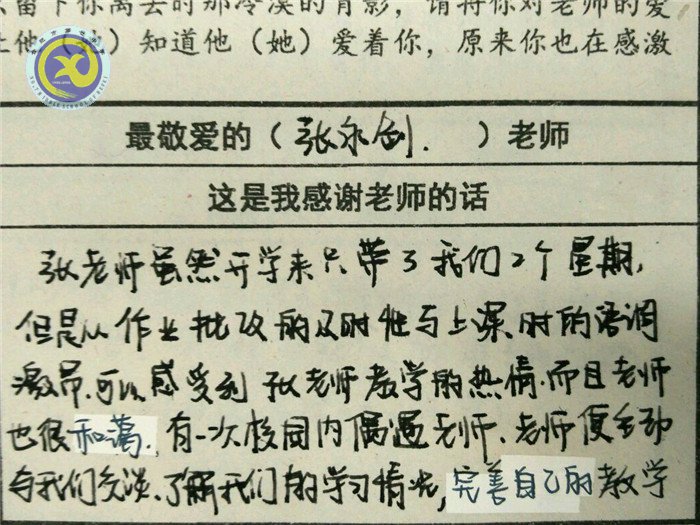 留下你离去时那冷漠的背影，请将你对老师的爱
让他（她）知道他（她）爱着你，原来你也在感激
最敬爱的（张永剑.）老师
这是我感谢老师的话
张老师虽然开学来只带了我们2个星期，
但是从作业批改的及时性与上课时的语调
激昂，可以感受到张老师教学的热情，而且老师
也很和蔼，有一次校园内偶遇老师，老师便主动
与我们交谈，了解我们的学习情况，完善自己的教学